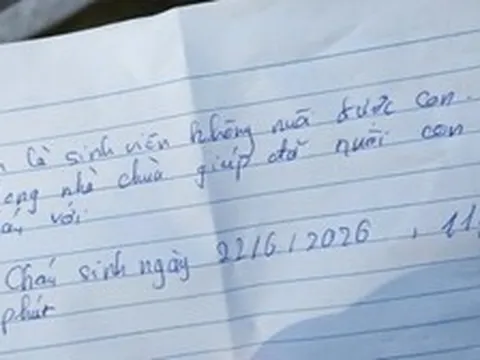 là sinh viên không nuôi được con.
ong nhà chùa giúp đỡ nuôi con
với
Cháu sinh ngày 22/6/2026, 11
phút